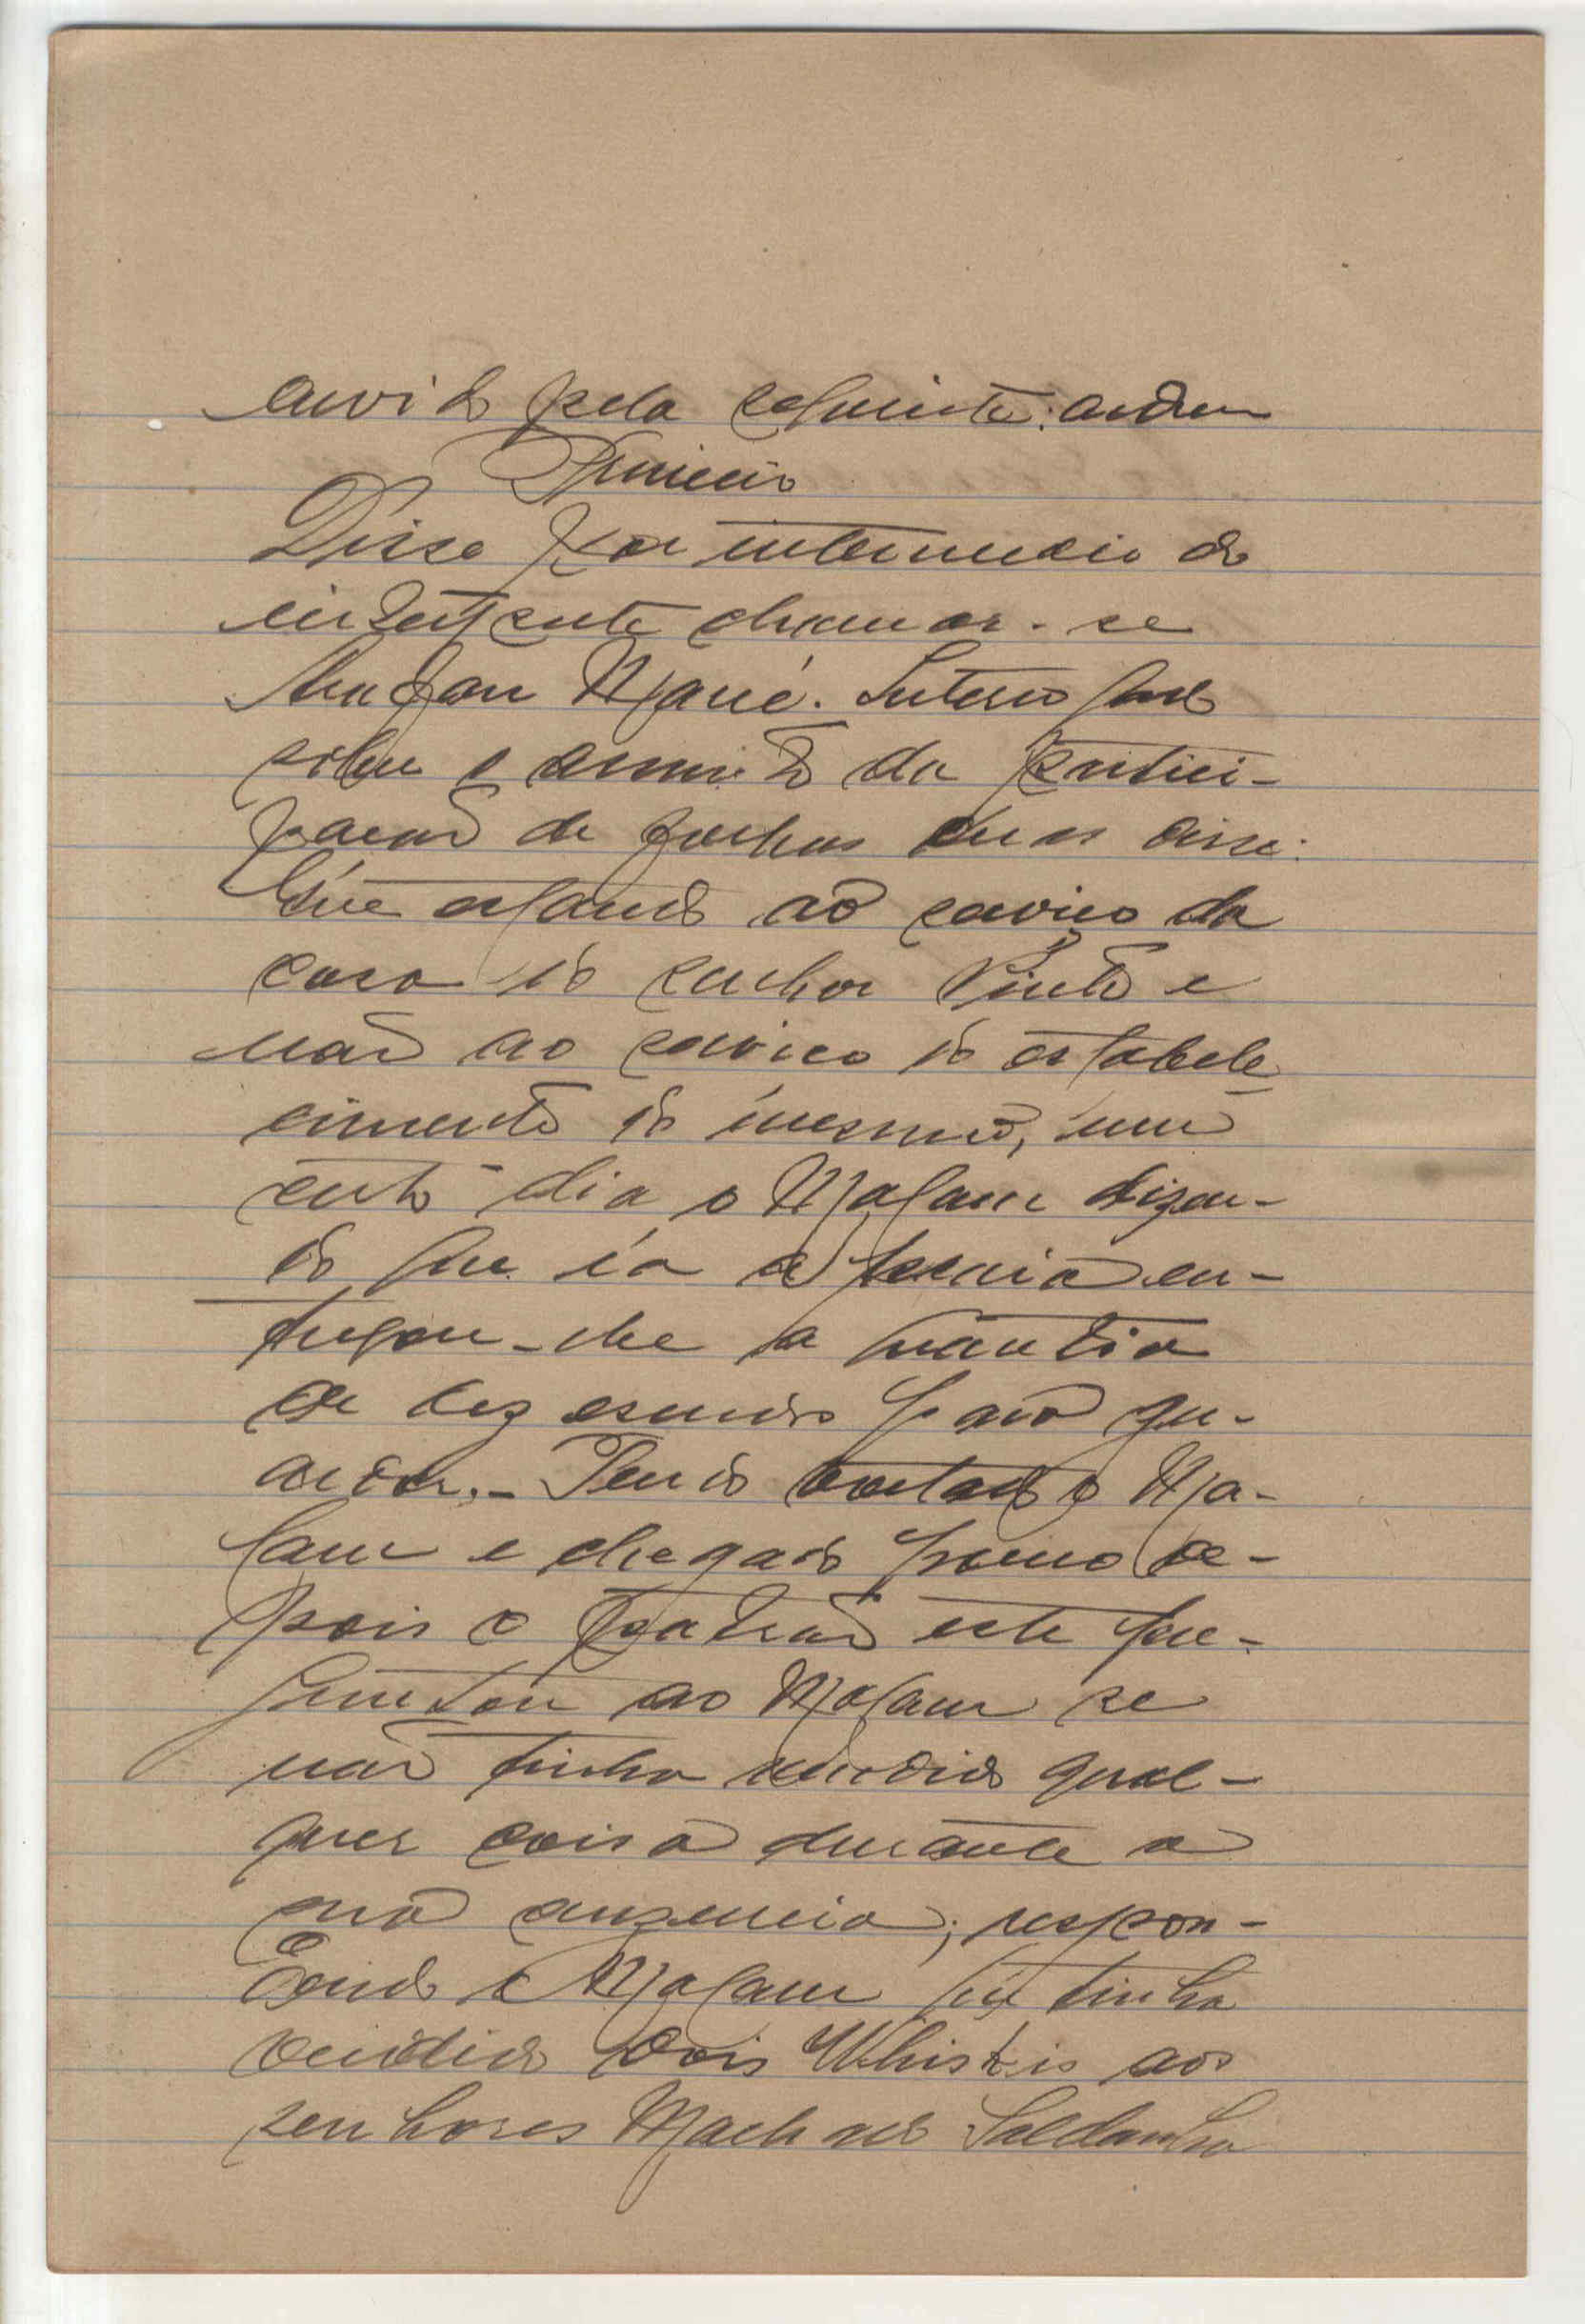 ouvido pela seguinte: ordem
Primeiro
Disse por intermedio do
interprete chamar-se
Mané. Interrogado
sobre o assunto da partici-
pacão de folhas duas disse:
Que estando ao serviço da
casa do senhor Pinto e
não ao serviço do estabele
cimento do mesmo, num
certo dia o Malam dizen-
do que ia a entregou-lhe a quantia
de dez escudos para gu-
ardar.- Tendo voltado o Ma-
lam e chegado pouco de-
pois o patrão este per-
guntou ao Malam se
não tinha vendido qual-
quer coisa durante a
sua ausencia; respon-
dendo o Malam que tinha
vendido dois Whiskis aos
senhores Machado Saldanha